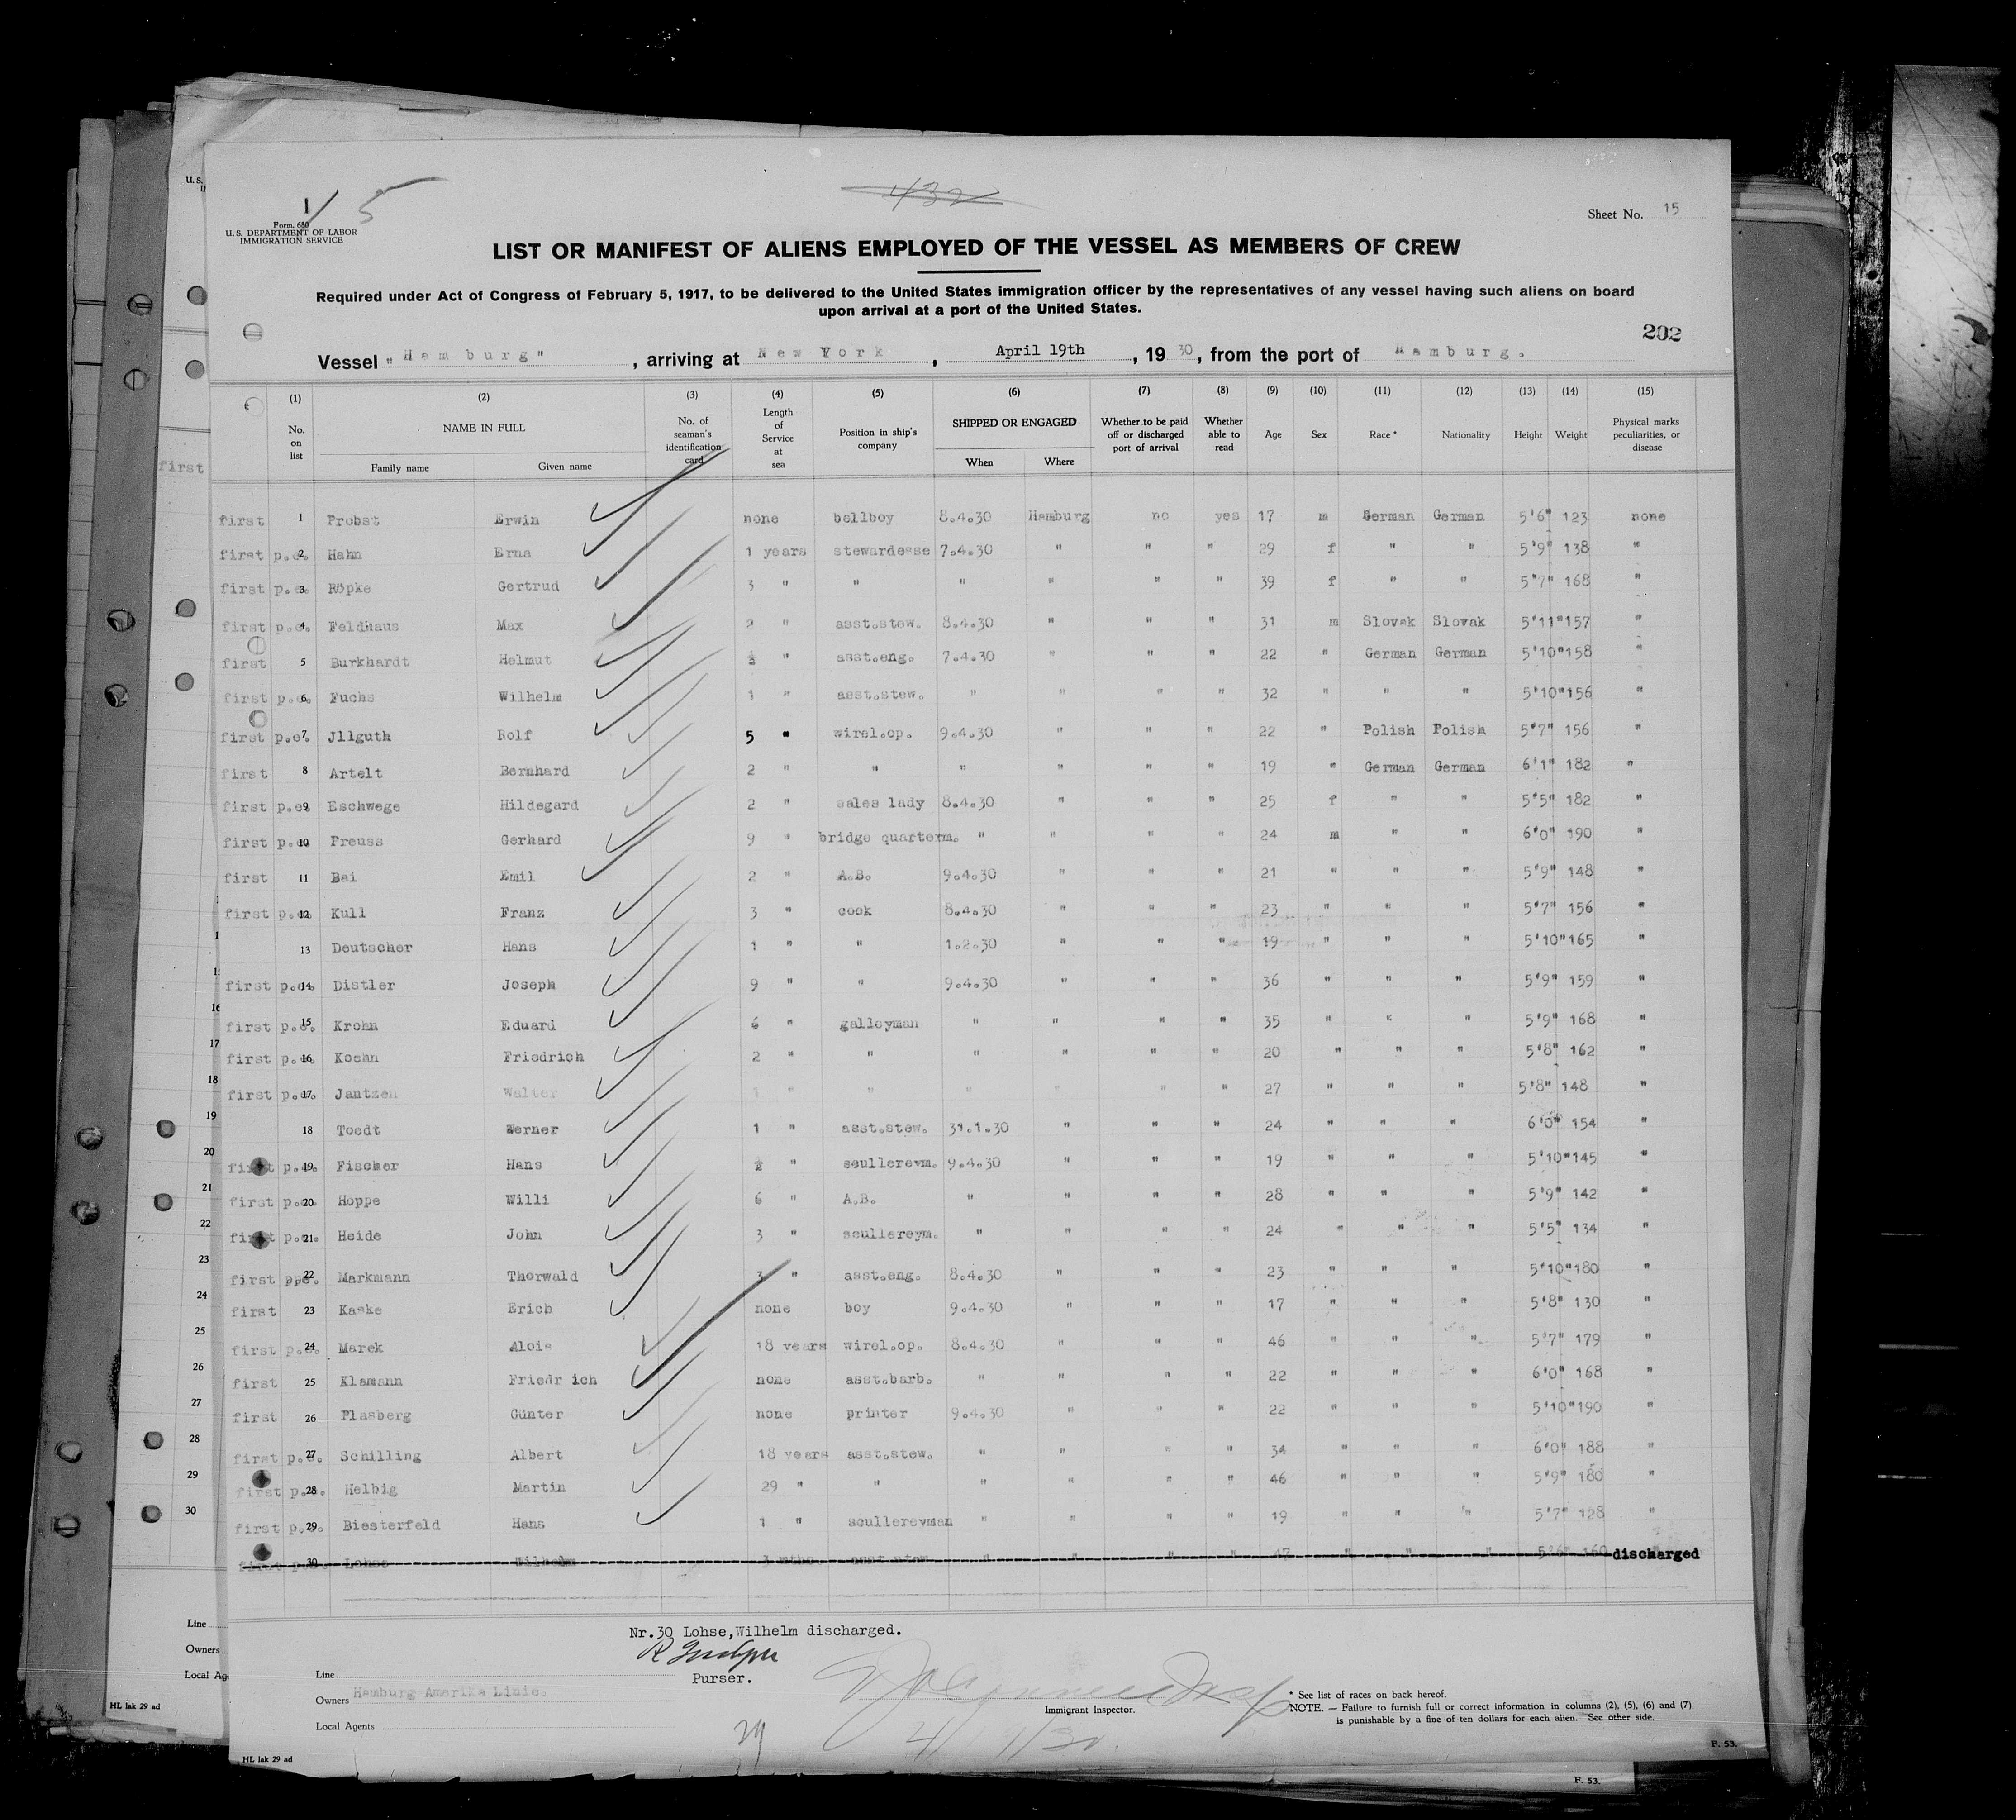 U.S.
1 5
432
Form. 680
U. S. DEPARTMENT OF LABOR
IMMIGRATION SERVICE
Sheet No. 15
LIST OR MANIFEST OF ALIENS EMPLOYED OF THE VESSEL AS MEMBERS OF CREW
Required under Act of Congress of February 5, 1917, to be delivered to the United States immigration officer by the representatives of any vessel having such aliens on board
upon arrival at a port of the United States.
202
Vessel "Hamburg", arriving at New York, April 19th, 1930, from the port of Hamburg.
(1) (2) (3) (4) (5) (6) (7) (8) (9) (10) (11) (12) (13) (14) (15)
No. on list NAME IN FULL Family name Given name No. of seaman's identification card Length of Service at sea Position in ship's company SHIPPED OR ENGAGED When Where Whether to be paid off or discharged port of arrival Whether able to read Age Sex Race * Nationality Height Weight Physical marks peculiarities, or disease
first
first 1 Probst Erwin none bellboy 8.4.30 Hamburg no yes 17 m German German 5'6" 123 none
first p.e. 2 Hahn Erna 1 years stewardesse 7.4.30 " " " 29 f " " 5'9" 138 "
first p.e. 3 Röpke Gertrud 3 " " " " " " 39 f " " 5'7" 168 "
first p.e. 4 Feldhaus Max 2 " asst.stew. 8.4.30 " " " 31 m Slovak Slovak 5'11" 157 "
first 5 Burkhardt Helmut ½ " asst.eng. 7.4.30 " " " 22 " German German 5'10" 158 "
first p.e. 6 Fuchs Wilhelm 1 " asst.stew. " " " " 32 " " " 5'10" 156 "
first p.e. 7 Jllguth Rolf 5 " wirel.op. 9.4.30 " " " 22 " Polish Polish 5'7" 156 "
first 8 Artelt Bernhard 2 " " " " " " 19 " German German 6'1" 182 "
first p.e. 9 Eschwege Hildegard 2 " sales lady 8.4.30 " " " 25 f " " 5'5" 182 "
first p.e. 10 Preuss Gerhard 9 " bridge quarterm. " " " " 24 m " " 6'0" 190 "
first 11 Bai Emil 2 " A.B. 9.4.30 " " " 21 " " " 5'9" 148 "
first p.e. 12 Kull Franz 3 " cook 8.4.30 " " " 23 " " " 5'7" 156 "
13 Deutscher Hans 1 " " 1.2.30 " " " 19 " " " 5'10" 165 "
first p.e. 14 Distler Joseph 9 " " 9.4.30 " " " 36 " " " 5'9" 159 "
first p.e. 15 Krohn Eduard 6 " galleyman " " " " 35 " " " 5'9" 168 "
first p.e. 16 Koehn Friedrich 2 " " " " " " 20 " " " 5'8" 162 "
first p.e. 17 Jantzen Walter 1 " " " " " " 27 " " " 5'8" 148 "
18 Toedt Werner 1 " asst.stew. 31.1.30 " " " 24 " " " 6'0" 154 "
first p.e. 19 Fischer Hans ½ " scullerevm. 9.4.30 " " " 19 " " " 5'10" 145 "
first p.e. 20 Hoppe Willi 6 " A.B. " " " " 28 " " " 5'9" 142 "
first p.e. 21 Heide John 3 " scullereym. " " " " 24 " " " 5'5" 134 "
first ppe. 22 Markmann Thorwald 3 " asst.eng. 8.4.30 " " " 23 " " " 5'10" 180 "
first 23 Kaske Erich none boy 9.4.30 " " " 17 " " " 5'8" 130 "
first p.e. 24 Marek Alois 18 years wirel.op. 8.4.30 " " " 46 " " " 5'7" 179 "
first 25 Klamann Friedr ich none asst.barb. " " " " 22 " " " 6'0" 168 "
first 26 Plasberg Günter none printer 9.4.30 " " " 22 " " " 5'10" 190 "
first p.e. 27 Schilling Albert 18 years asst.stew. " " " " 34 " " " 6'0" 188 "
first p.e. 28 Helbig Martin 29 " " " " " " 46 " " " 5'9" 180 "
first p.e. 29 Biesterfeld Hans 1 " scullerevman " " " " 19 " " " 5'7" 128 "
first p.e. 30 Lohse Wilhelm 3 mths. asst.stew. " " " " 47 " " " 5'6" 160 discharged
16
17
18
19
20
21
22
23
24
25
26
27
28
29
30
Nr.30 Lohse,Wilhelm discharged.
Purser.
Line
Owners Hamburg Amerika Linie.
Local Agents
Immigrant Inspector.
29
* See list of races on back hereof.
NOTE. — Failure to furnish full or correct information in columns (2), (5), (6) and (7)
is punishable by a fine of ten dollars for each alien. See other side.
HL lak 29 ad
F. 53.
Line
Owners
Local Ag
HL lak 29 ad
F. 53.